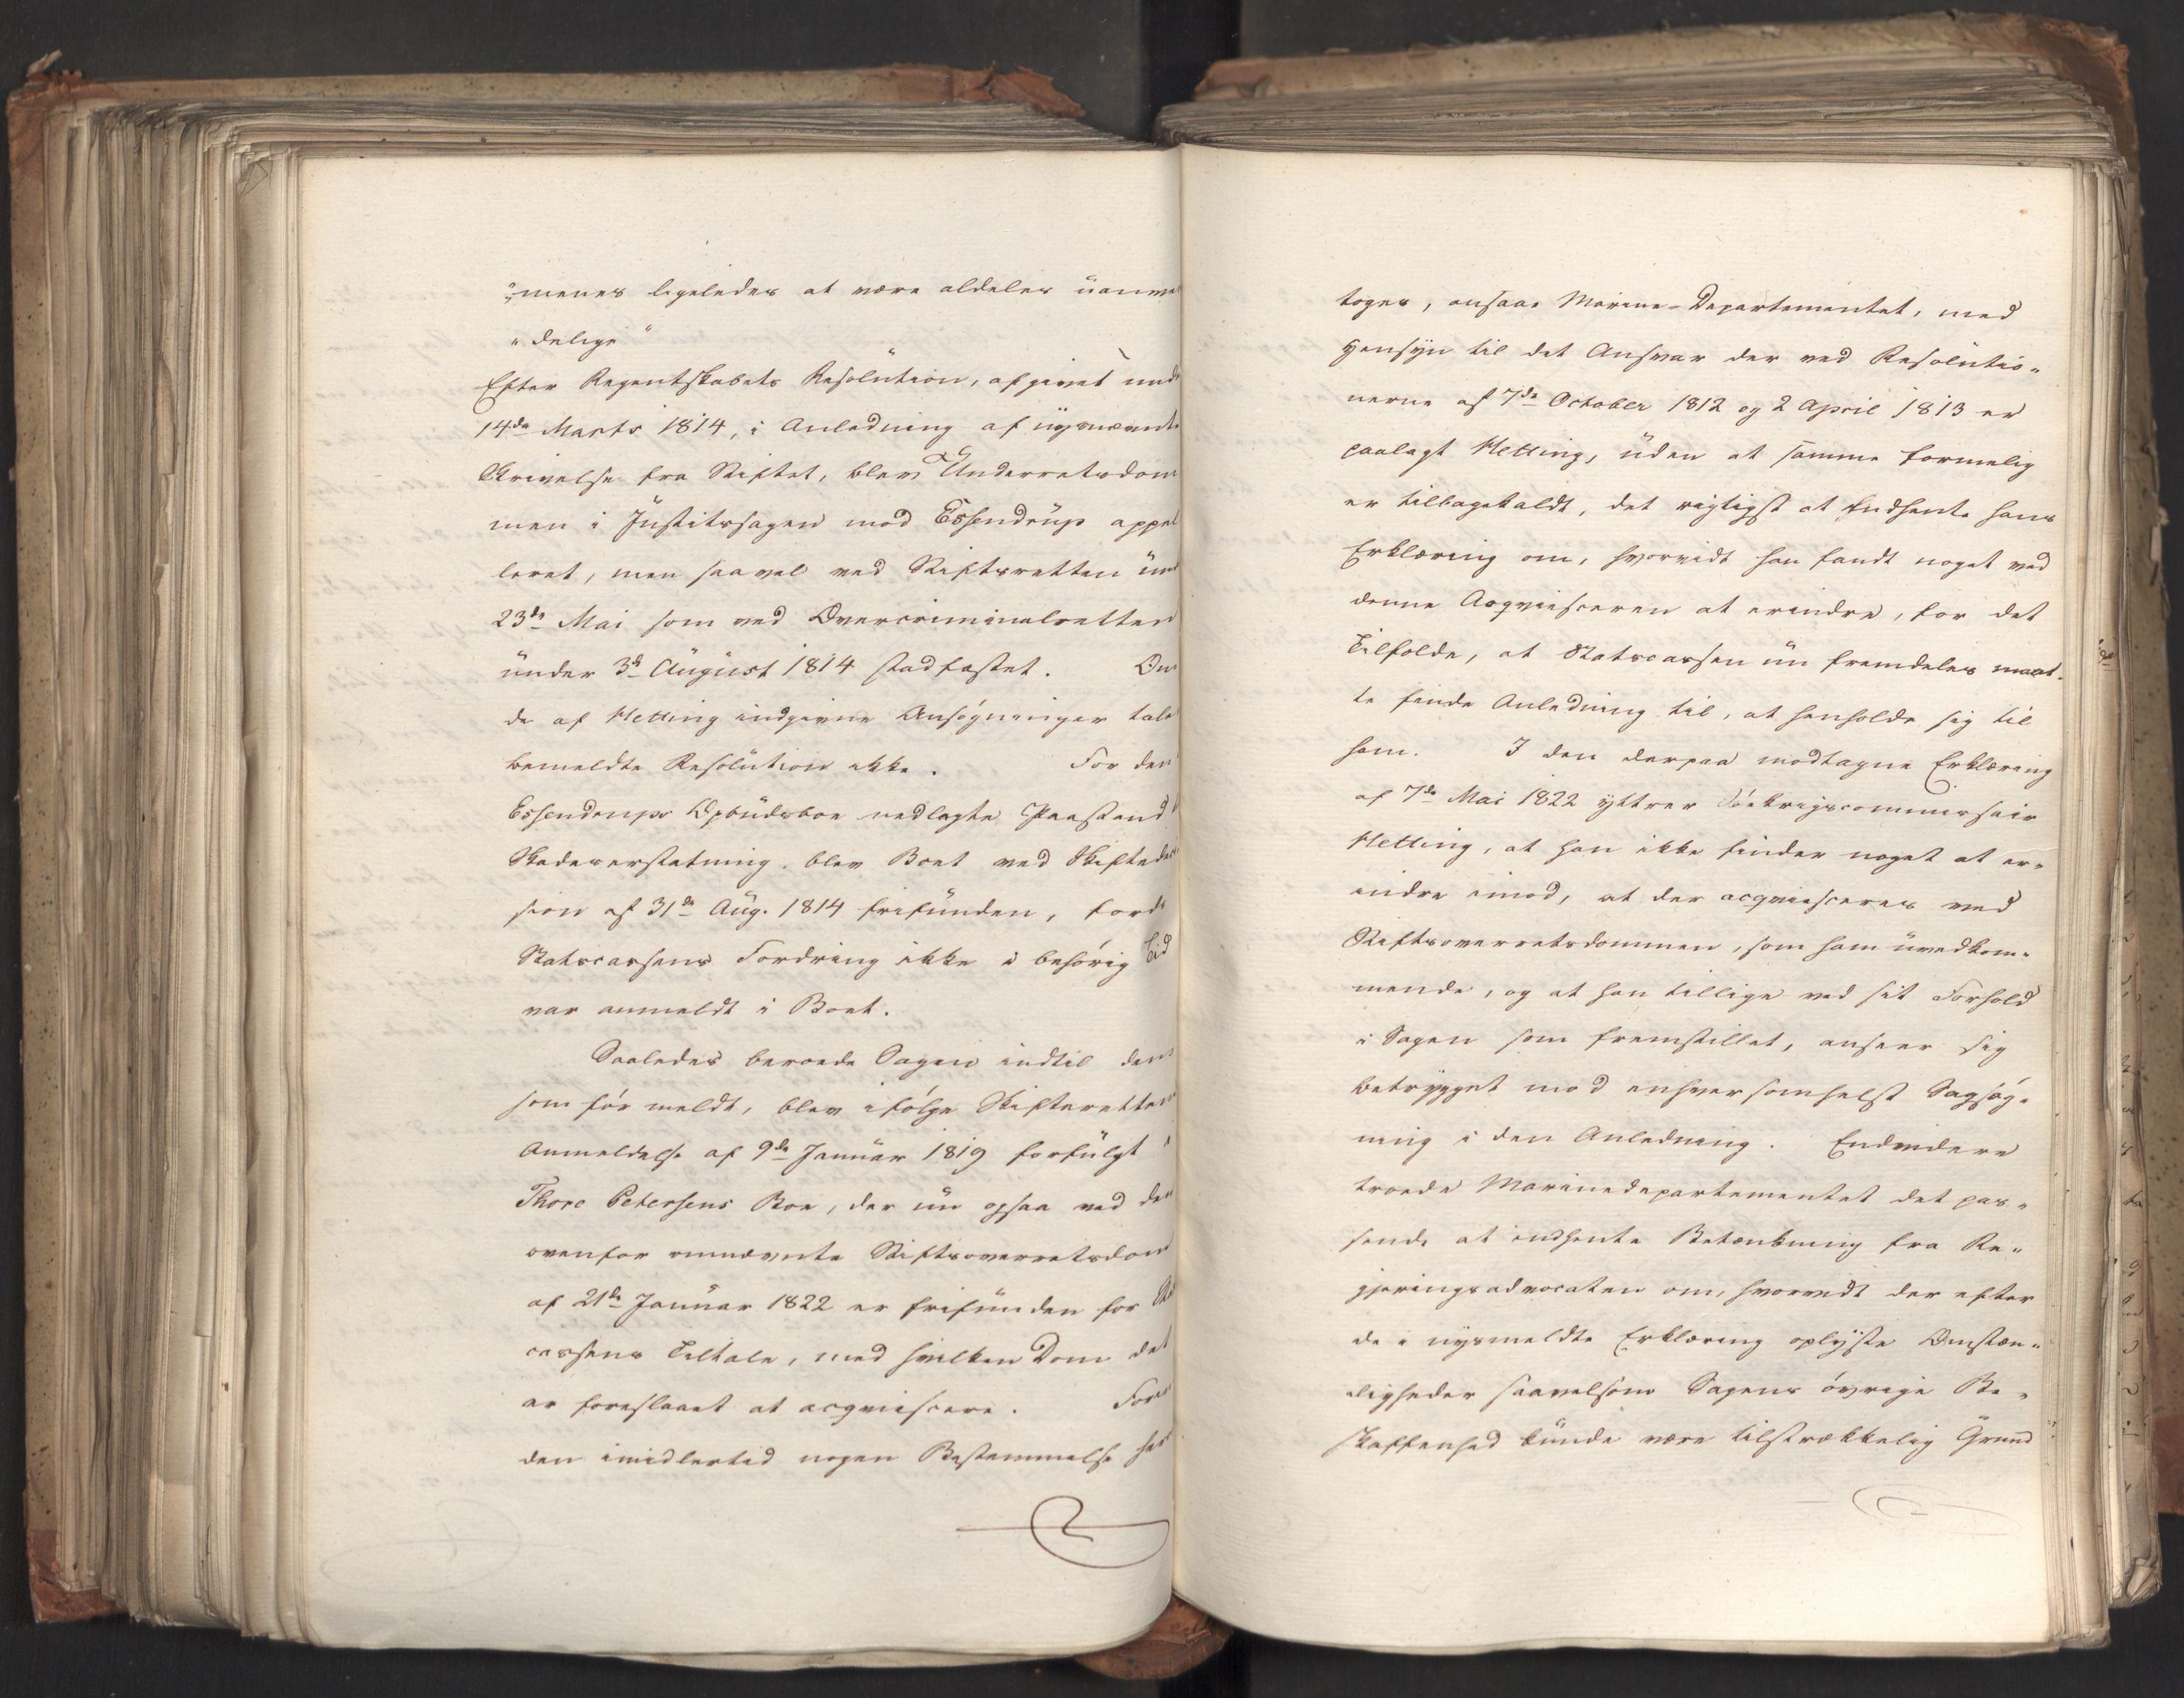 „menes ligeledes at være aldeles uanven
„delige“
Efter Regentskabets Resolution, afgivet unde
14de Marts 1814, i Anledning af nysnævnte
Skrivelse fra Stiftet, blev Underretsdom
men i Justitssagen mod Essendrup appel
leret, men saavel ved Stiftsretten und
23de Mai som ved Overcriminalretten
under 3de August 1814 stadfæstet. Om
de af Hetting indgivne Ansøgninger tale
bemeldte Resolution ikke. For den
Essendrups Opbudsboe nedlagte Paastand
Skadeserstatning, blev Boet ved Skiftede
sion af 31de Aug. 1814 frifunden, fordi
Statscassens Fordring ikke i behørig Tid
var anmeldt i Boet.
Saaledes beroede Sagen indtil den
som før meldt, blev ifølge Skifteretten
Anmeldelse af 9de Januar 1819 forfulgt i
Thore Petersens Boe, der nu ogsaa ved den
ovenfor ommeldte Stiftsoverretsdom
af 21de Januar 1822 er frifunden for Stat
cassens Tiltale, med hvilken Dom det
er foreslaaet at acqviescere. Foren
den imidlertid nogen Bestemmelse her
toges, ansaae Marine-Departementet, med
Hensyn til det Ansvar der ved Resolutio„
nerne af 7de October 1812 og 2 April 1813 er
paalagt Hetting, uden at samme formelig
er tilbagekaldt, det rigtigst at indhente hans
Erklæring om, hvorvidt han fandt noget ved
denne Acqviesceren at erindre, for det
Tilfælde, at Statscassen nu fremdeles maat„
te finde Anledning til, at henholde sig til
ham. I den derpaa modtagne Erklæring
af 7de Mai 1822 yttrer Søekrigscommissair
Hetting, at han ikke finder noget at er„
indre imod, at der acqviesceres ved
Stiftsoverretsdommen, som ham uvedkom„
mende, og at han tillige ved sit Forhold
i Sagen som fremstillet, anseer sig
betrygget mod enhversomhelst Sagsøg„
ning i den Anledning. Endvidere
troede Marinedepartementet det pas„
sende at indhente Betænkning fra Re„
gjeringsadvocaten om, hvorvidt der efter
de i nysmeldte Erklæring oplyste Omstæn„
digheder saavelsom Sagens øvrige Be„
skaffenhed kunde være tilstrækkelig Grund